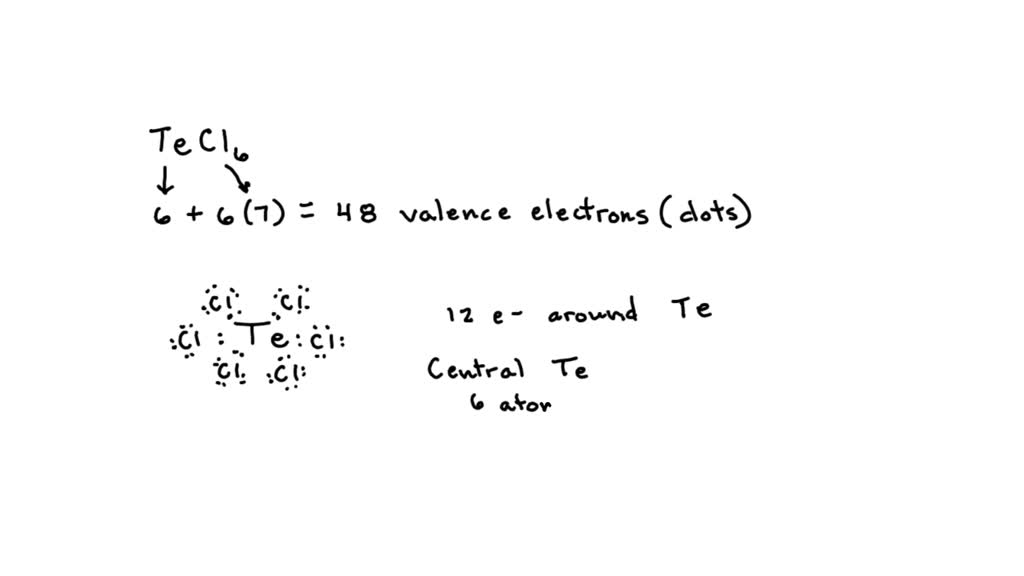 TeCl6
↓ ↘
6 + 6(7) = 48 valence electrons (dots)
Cl Cl
Cl : Te : Cl
Cl Cl
12 e- around Te
Central Te
6 ator